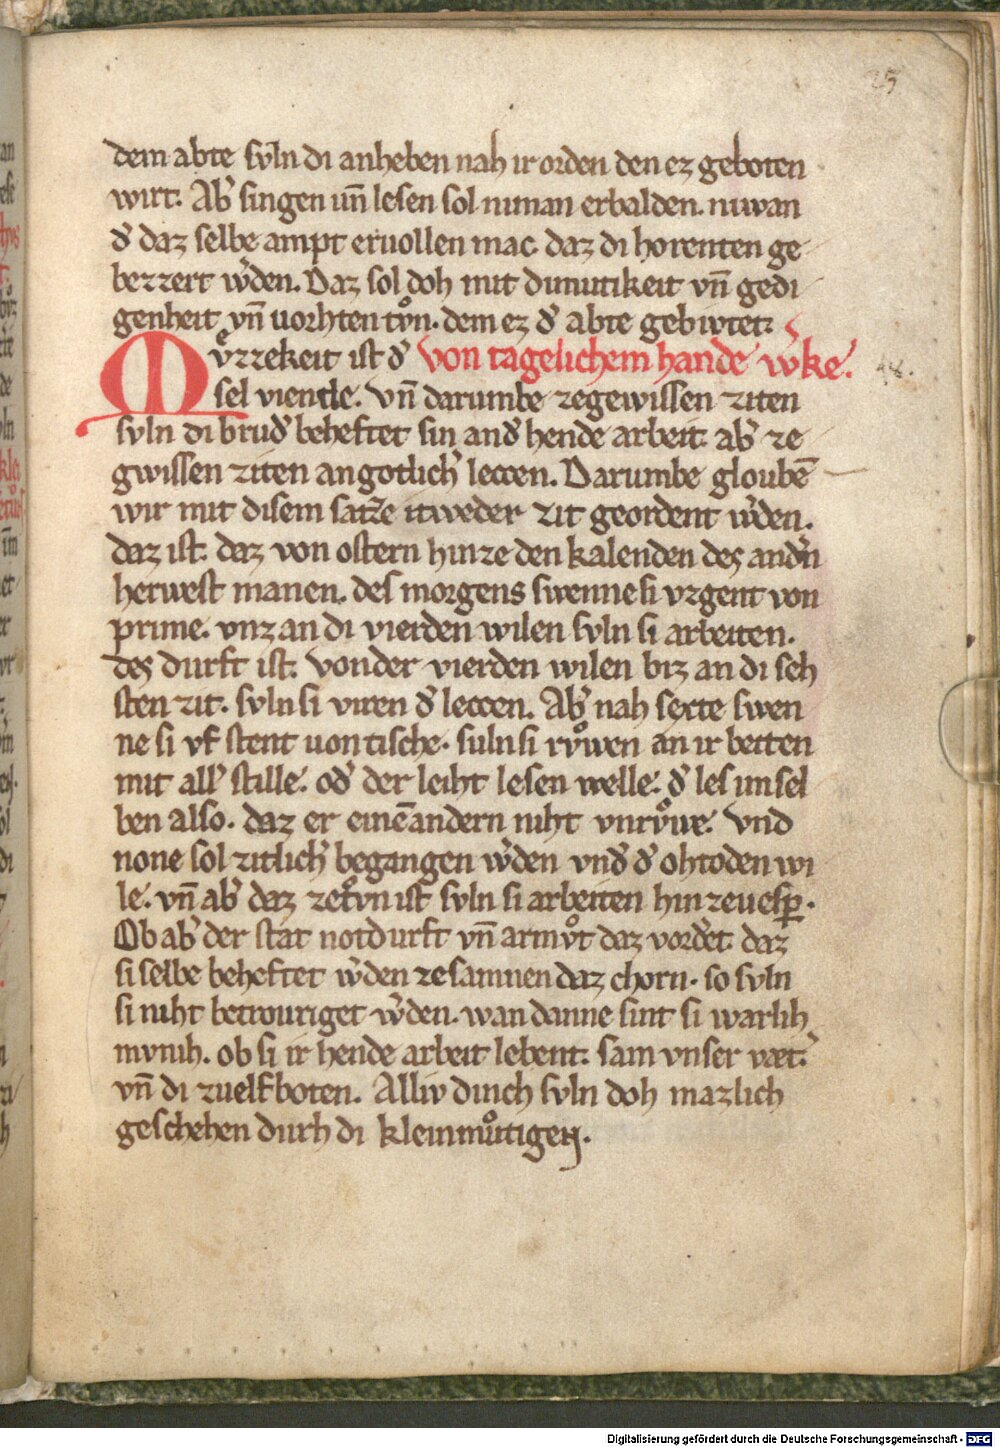 25
dem abte svln di anheben nah ir orden den ez geboten
wirt. Ab͛ singen un̄ lesen sol niman erbalden. nuwan
d͛ daz selbe ampt eruollen mac. daz di horenten ge
bezzert w͛den. Daz sol doh mit dimutikeit vn̄ gedi
genheit vn̄ uorhten tv̊n. dem ez d͛ abte gebivtet.
Mv̊zzekeit ist d͛ von tagelichem hande w͛ke.
sel vientle. vn̄ darumbe zegewissen ziten
svln di brud͛ beheftet sin and͛ hende arbeit. ab͛ ze
gwissen ziten an gotlich͛ leccen. Darumbe gloubē
wir mit disem satze itweder zit geordent w͛den.
daz ist. daz von ostern hinze den kalenden dez and͛n
herwest manen. des morgens swenne si vzgent von
prime. vnz an di vierden wilen svln si arbeiten.
des durft ist. von der vierden wilen biz an di seh
sten zit. svln si viren d͛ leccen. Ab͛ nah sexte swen
ne si vf stent uon tische. suln si rv̊wen an ir betten
mit all͛ stille. od͛ der leiht lesen welle. d͛ les im sel
ben also. daz er einē andern niht vnrv̊we. vnd
none sol zitlich͛ begangen w͛den vnd͛ d͛ ohtoden wi
le. vn̄ ab͛ daz zetv̊n ist svln si arbeiten hin zeuesp͛.
Ob ab͛ der stat notdurft vn̄ armv̊t daz vord͛et. daz
si selbe beheftet w͛den zesamnen daz chorn. so svln
si niht betrouriget w͛den. wan danne sint si warlih
mvnih. ob si ir hende arbeit lebent. sam vnser væt͛.
vn̄ di zuelfboten. Alliv dinch svln doh mazlich
geschehen durh di kleinmůtigen.
Digitalisierung gefördert durch die Deutsche Forschungsgemeinschaft - DFG